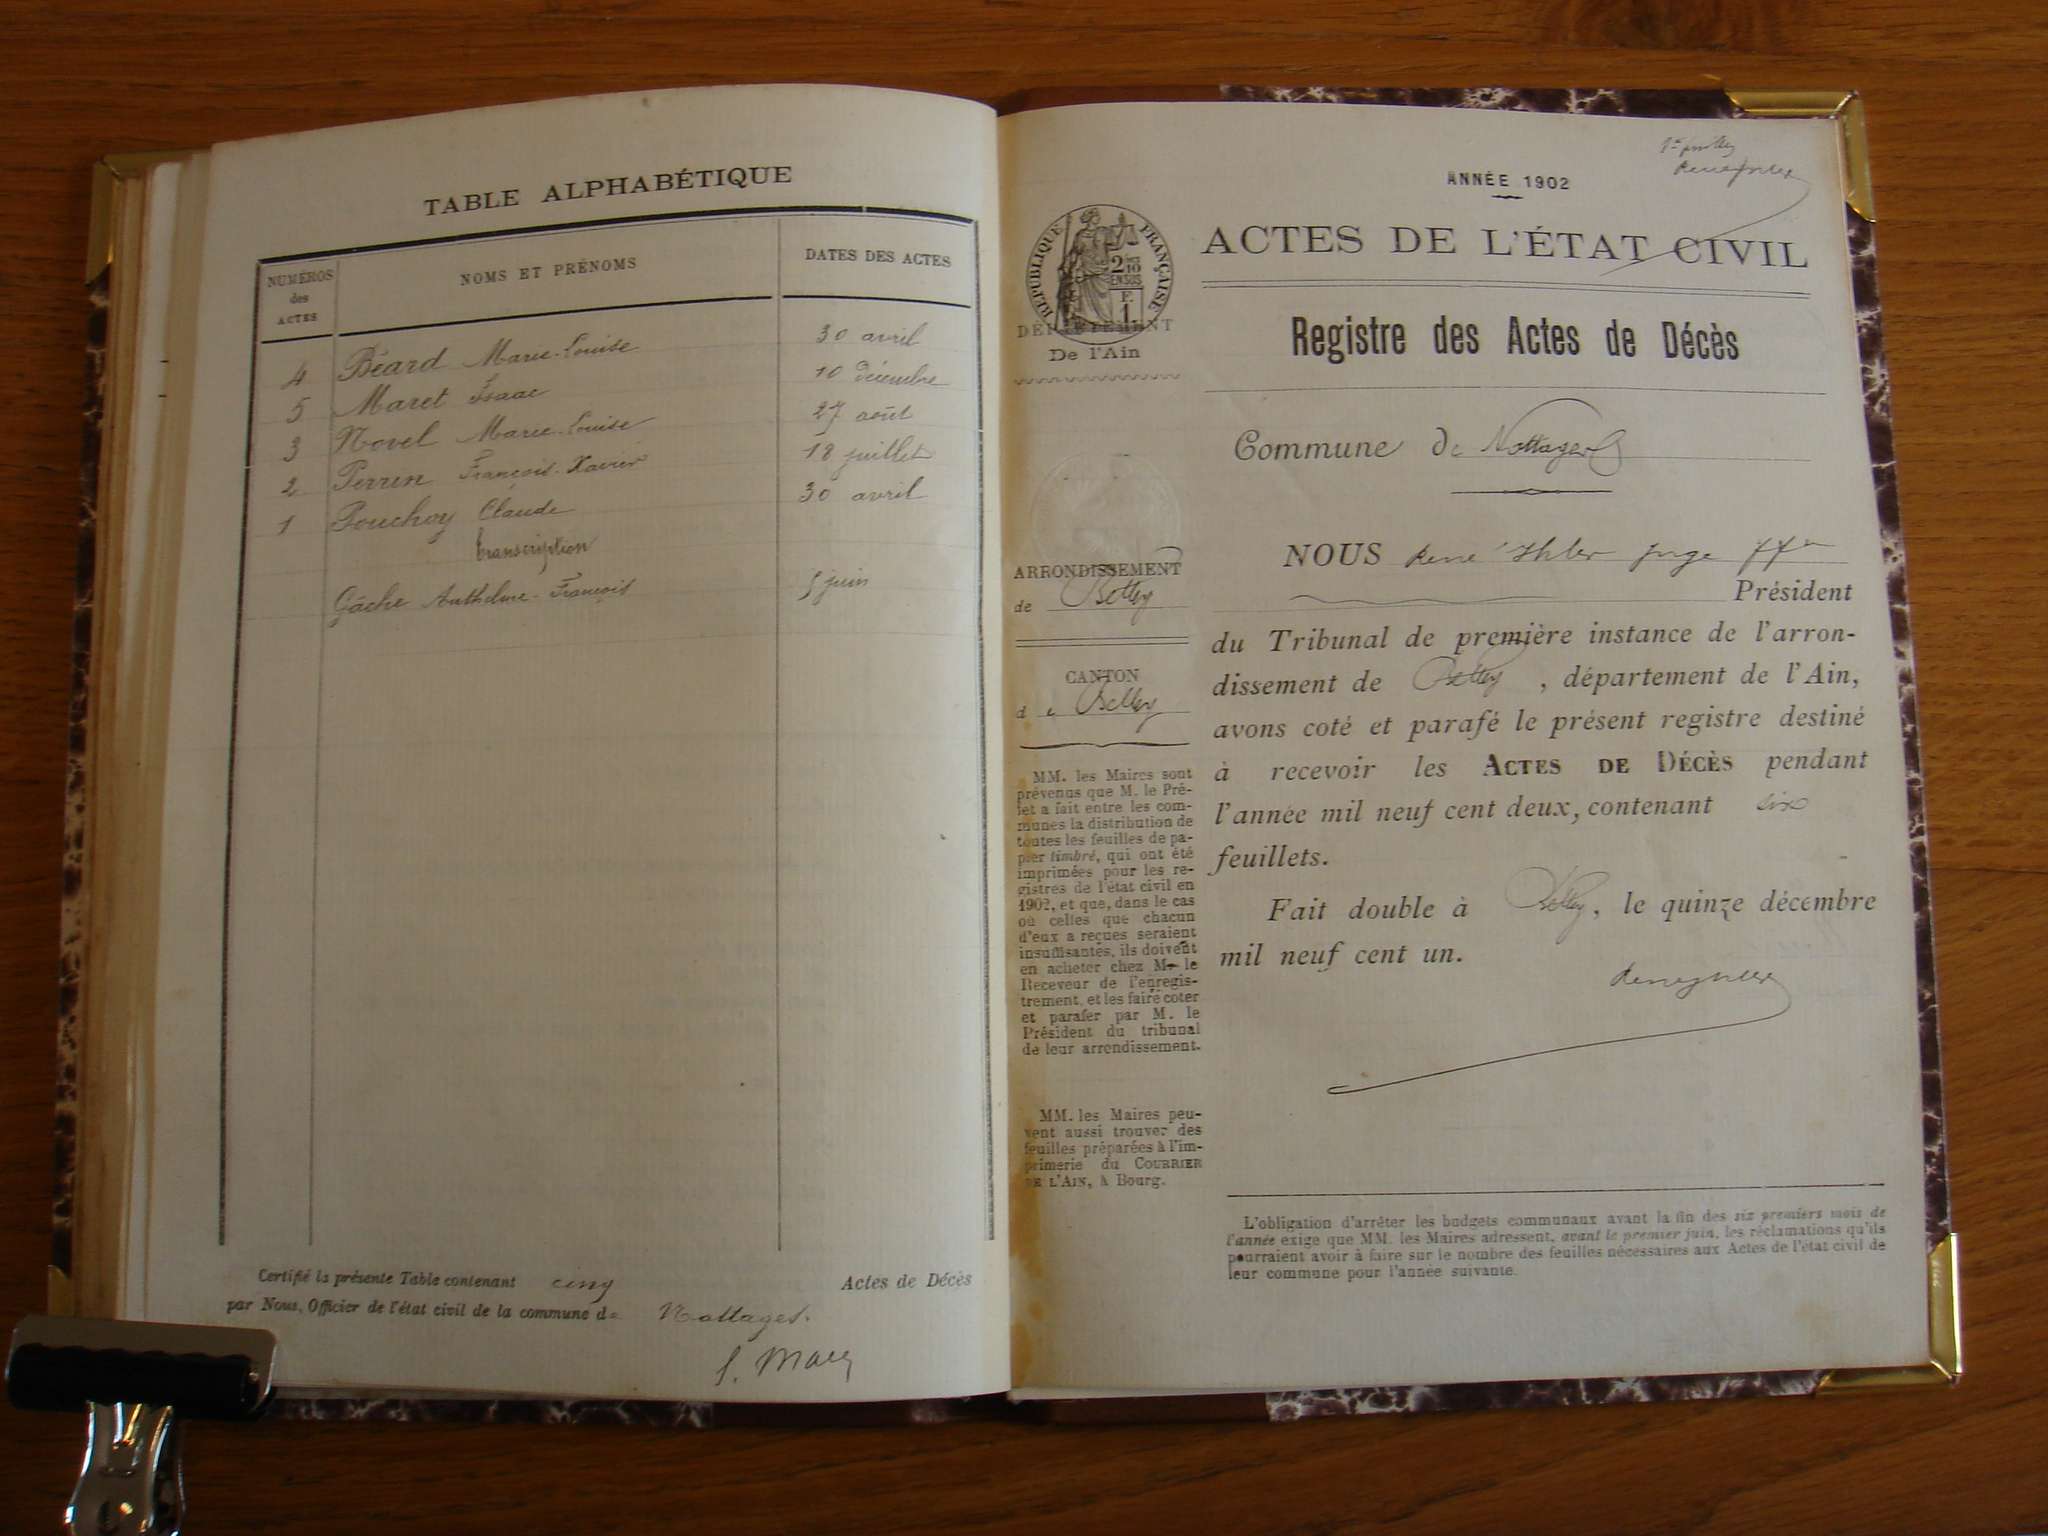 TABLE ALPHABÉTIQUE
NUMÉROS
des
ACTES
NOMS ET PRÉNOMS
DATES DES ACTES
4 Béard Marie-Louise 30 avril
5 Maret Isaac 10 décembre
3 Novel Marie-Louise 27 août
2 Perrin François-Xavier 18 juillet
1 Pouchoy Claude 30 avril
transcription
Gâche Anthelme-François 5 juin
Certifié la présente Table contenant cinq Actes de Décès
par Nous, Officier de l'état civil de la commune de Nattages.
ANNÉE 1902
ACTES DE L'ÉTAT CIVIL
RÉPUBLIQUE FRANÇAISE
2/10 EN SUS
F. 1.
DÉPARTEMENT
De l'Ain
Registre des Actes de Décès
Commune de Nattages
ARRONDISSEMENT
de Belley
CANTON
de Belley
MM. les Maires sont
prévenus que M. le Pré-
fet a fait entre les com-
munes la distribution de
toutes les feuilles de pa-
pier timbré, qui ont été
imprimées pour les re-
gistres de l'état civil en
1902, et que, dans le cas
où celles que chacun
d'eux a reçues seraient
insuffisantes, ils doivent
en acheter chez M. le
Receveur de l'enregis-
trement, et les faire coter
et parafer par M. le
Président du tribunal
de leur arrondissement.
MM. les Maires peu-
vent aussi trouver des
feuilles préparées à l'im-
primerie du COURRIER
DE L'AIN, à Bourg.
NOUS René Ihler juge
Président
du Tribunal de première instance de l'arron-
dissement de Belley, département de l'Ain,
avons coté et parafé le présent registre destiné
à recevoir les ACTES DE DÉCÈS pendant
l'année mil neuf cent deux, contenant six
feuillets.
Fait double à Belley, le quinze décembre
mil neuf cent un.
L'obligation d'arrêter les budgets communaux avant la fin des six premiers mois de
l'année exige que MM. les Maires adressent, avant le premier juin, les réclamations qu'ils
pourraient avoir à faire sur le nombre des feuilles nécessaires aux Actes de l'état civil de
leur commune pour l'année suivante.